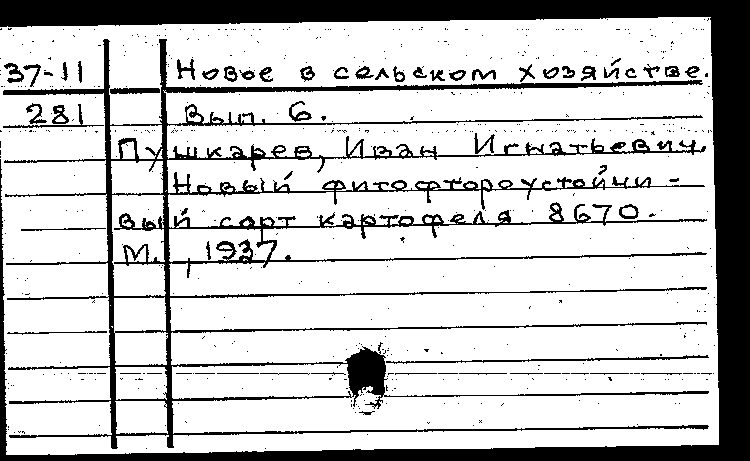 37-11 Новое в сельском хозяйстве.
281 Вып. 6.
Пушкарев, Иван Игнатьевич.
Новый фитофтороустойчи-
вый сорт картофеля 8670.
М., 1937.